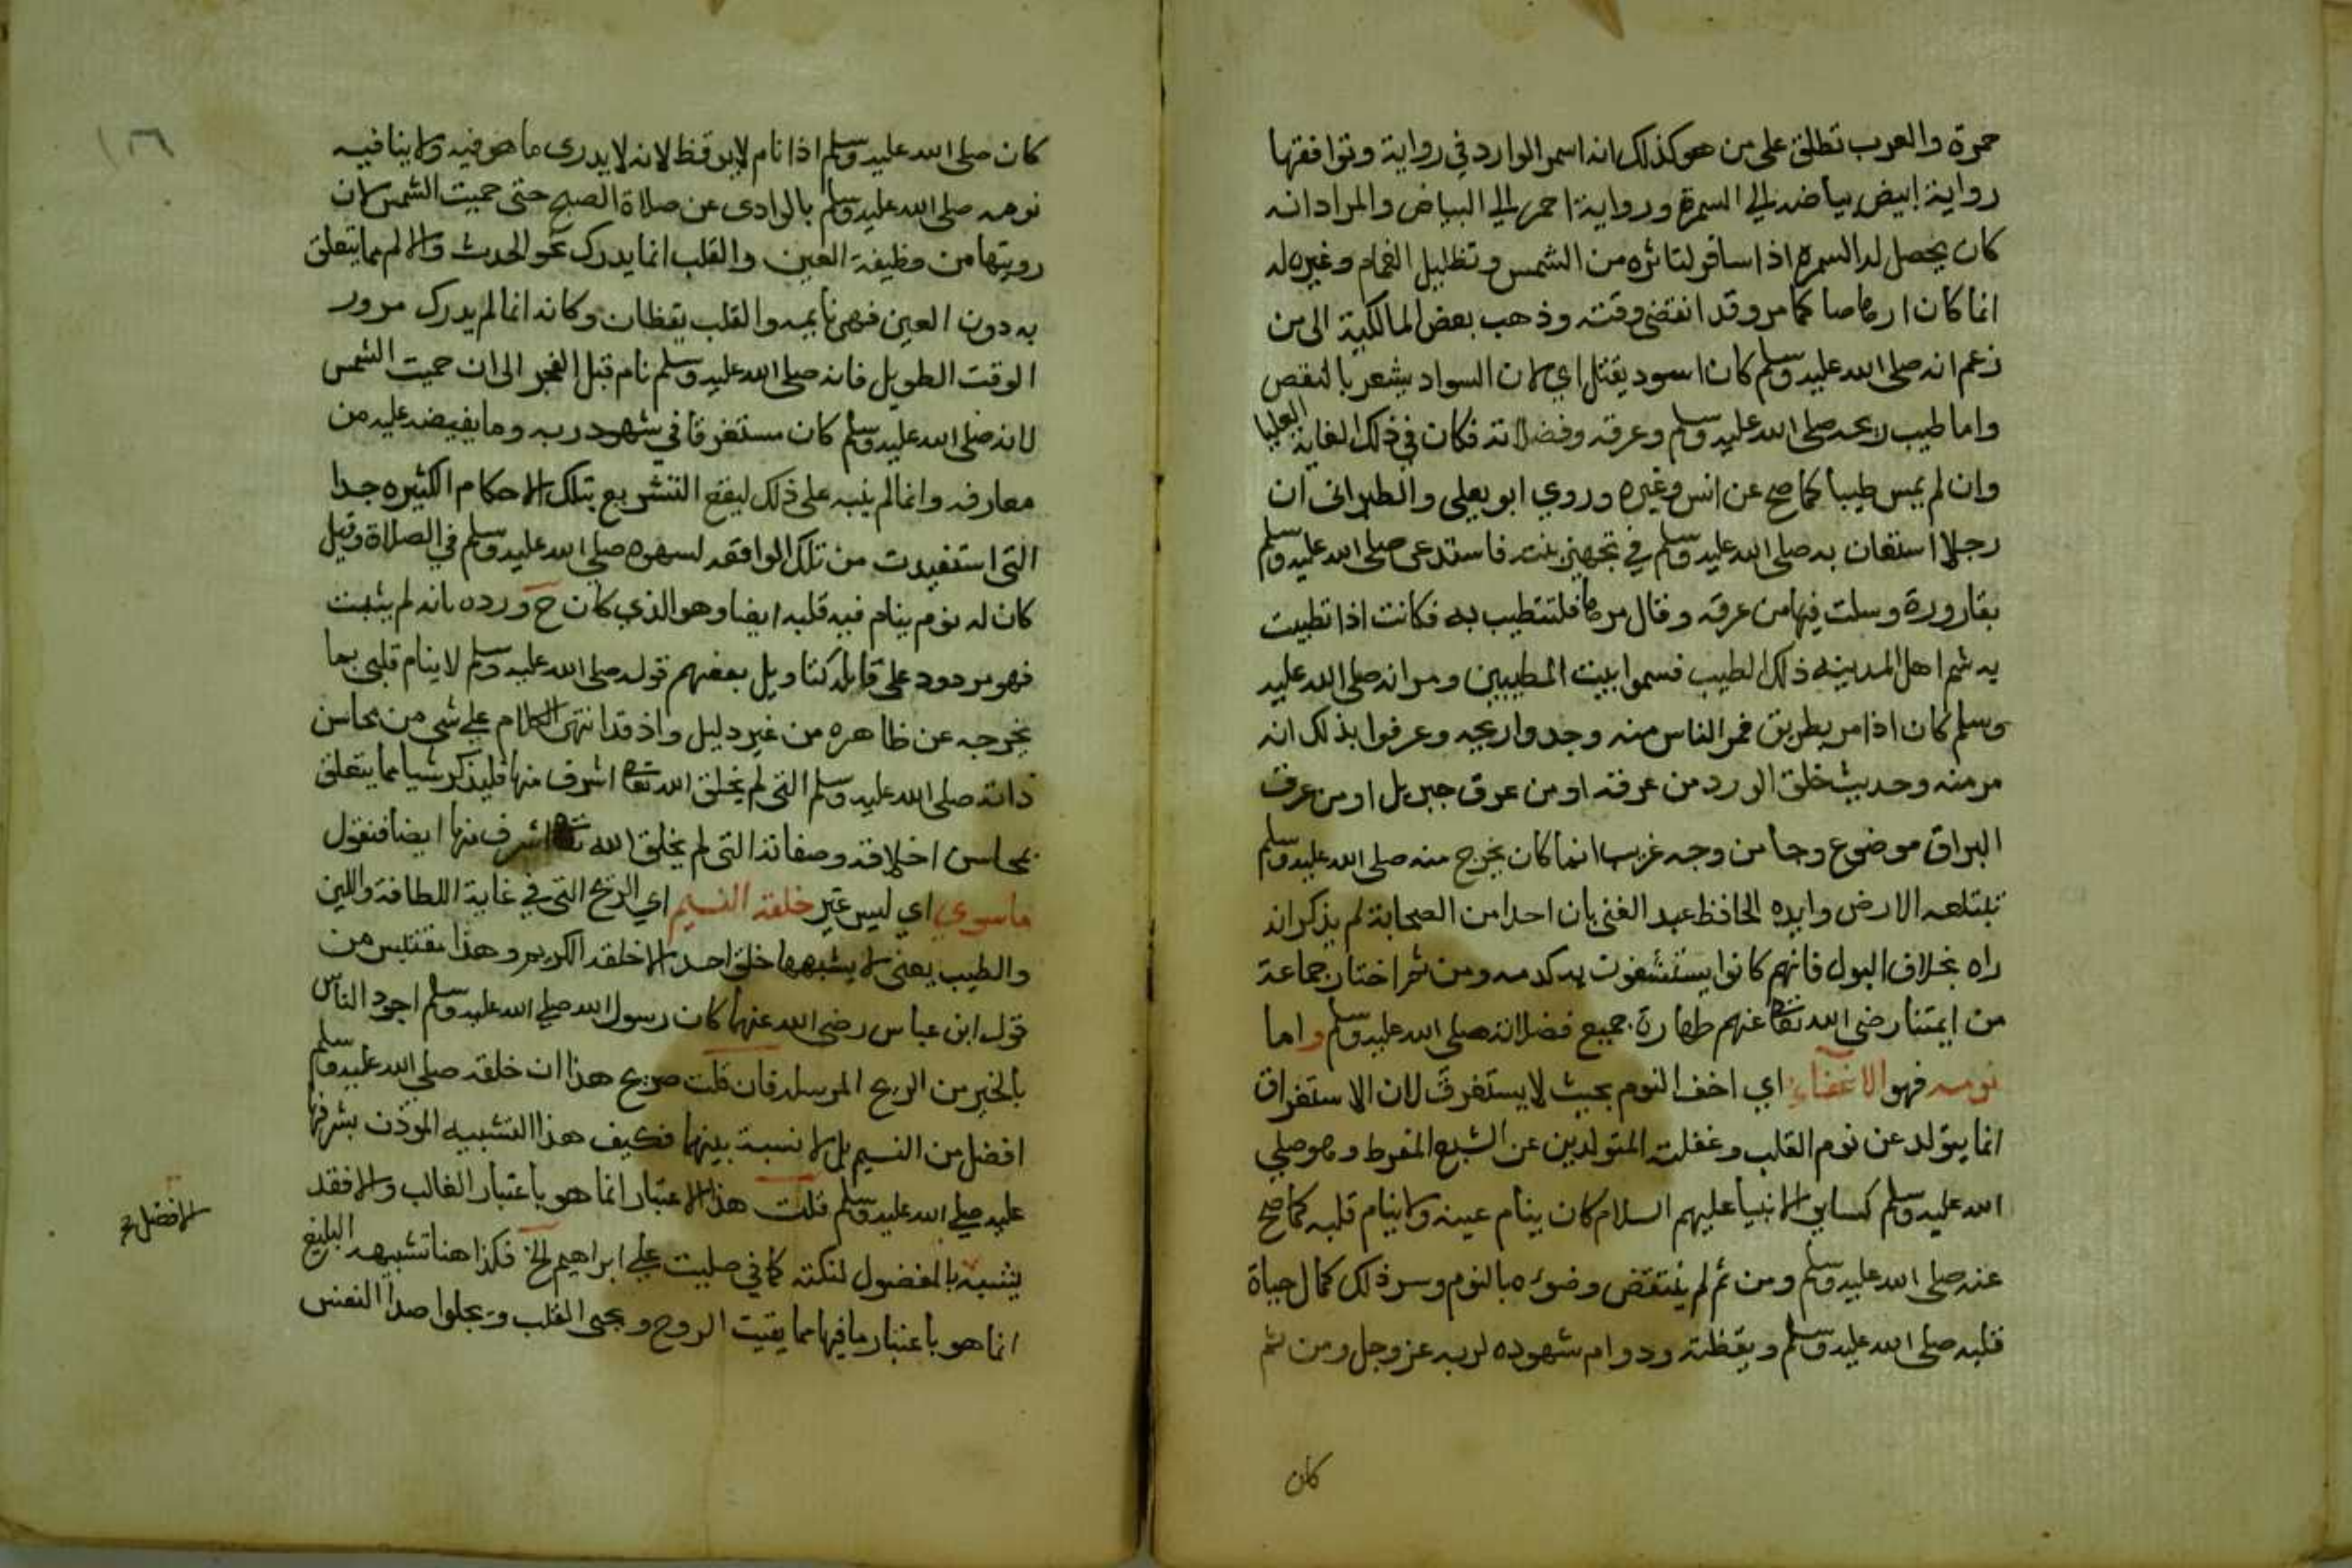 حمرة والعرب تطلق على من هو كذلك انه اسمر الوارد في رواية وتوافقها
رواية ابيض بياضه الي السمرة ورواية احمر الي البياض والمراد انه
كان يحصل له السمرة اذا سافر لتاثره من الشمس وتظليل الغمام وغيره له
انما كان ارهاصا كما مر وقد انقضى وقته وذهب بعض المالكية الى من
زعم انه صلى الله عليه وسلم كان اسود يقتل اي لان السواد يشعر بالنقص
واما طيب ريحه صلى الله عليه وسلم وعرقه وفضلاته فكان في ذلك الغاية العليا
وان لم يمس طيبا كما صح عن انس وغيره وروي ابو يعلى والطبراني ان
رجلا استعان به صلى الله عليه وسلم في تجهيز بنته فاستدعى صلى الله عليه وسلم
بقارورة وسلت فيها من عرقه وقال مرها فلتتطيب به فكانت اذا تطيبت
به شم اهل المدينة ذلك الطيب فسموا بيت المطيبين ومر انه صلى الله عليه
وسلم كان اذا مر بطريق فمر الناس منه وجدوا ريحه وعرفوا بذلك انه
مر منه وحديث خلق الورد من عرقه او من عرق جبريل او من عرق
البراق موضوع وجا من وجه غريب انما كان يخرج منه صلى الله عليه وسلم
تبتلعه الارض وايده الحافظ عبد الغني بان احدا من الصحابة لم يذكر انه
راه بخلاف البول فانهم كانوا يستشفون به كدمه ومن ثم اختار جماعة
من ايمتنا رضي الله تعا عنهم طهارة جميع فضلاته صلى الله عليه وسلم واما
نومه فهو الاغفاء اي اخف النوم بحيث لا يستغرق لان الاستغراق
انما يتولد عن نوم القلب وغفلته المتولدين عن الشبع المفرط وهو صلي
الله عليه وسلم كساير الانبيا عليهم السلام كان ينام عينه ولا ينام قلبه كما صح
عنه صلى الله عليه وسلم ومن ثم لم ينتقض وضوءه بالنوم وسر ذلك كمال حياة
قلبه صلى الله عليه وسلم ويقظته ودوام شهوده لربه عز وجل ومن ثم
كان
١٦
كان صلى الله عليه وسلم اذا نام لا يوقظ لانه لا يدرى ما هو فيه ولا ينافيه
نومه صلى الله عليه وسلم بالوادى عن صلاة الصبح حتى حميت الشمس لان
رويتها من وظيفة العين والقلب انما يدرك نحو الحدث والالم مما يتعلق
به دون العين فهي نايمه والقلب يقظان وكانه انما لم يدرك مرور
الوقت الطويل فانه صلى الله عليه وسلم نام قبل الفجر الى ان حميت الشمس
لانه صلى الله عليه وسلم كان مستغرقا في شهود ربه وما يفيضه عليه من
معارفه وانما لم ينبه على ذلك ليقع التشريع بتلك الاحكام الكثيره جدا
التى استفيدت من تلك الواقعة لسهوه صلى الله عليه وسلم في الصلاة وقيل
كان له نوم ينام فيه قلبه ايضا وهو الذي كان ح ورده بانه لم يثبت
فهو مردود على قايله كتاويل بعضهم قوله صلى الله عليه وسلم لا ينام قلبي بما
يخرجه عن ظاهره من غير دليل واذ قد انتهى الكلام على شي من محاسن
ذاته صلى الله عليه وسلم التى لم يخلق الله تعا اشرف منها فليذكر شيا مما يتعلق
بمحاسن اخلاقه وصفاته التى لم يخلق الله تعا اشرف منها ايضا فنقول
ما سوي اي ليس غير خلقه النسيم اي الريح التى في غاية اللطافة واللين
والطيب يعنى لا يشبهها خلق احد الا خلقه الكريم وهذا مقتبس من
قول ابن عباس رضى الله عنهما كان رسول الله صلى الله عليه وسلم اجود الناس
بالخير من الريح المرسله فان قلت صريح هذا ان خلقه صلى الله عليه وسلم
افضل من النسيم بل لا نسبة بينهما فكيف هذا التشبيه الموذن بشرفها
عليه صلى الله عليه وسلم قلت هذا الاعتبار انما هو باعتبار الغالب والا فقد
يشبه بالمفضول لنكتة كما في صليت على ابراهيم الخ فكذا هنا تشبيهه البليغ
انما هو باعتبار ما فيها مما يقيت الروح ويحيى القلب ويجلوا صدا النفس
الافضل ح